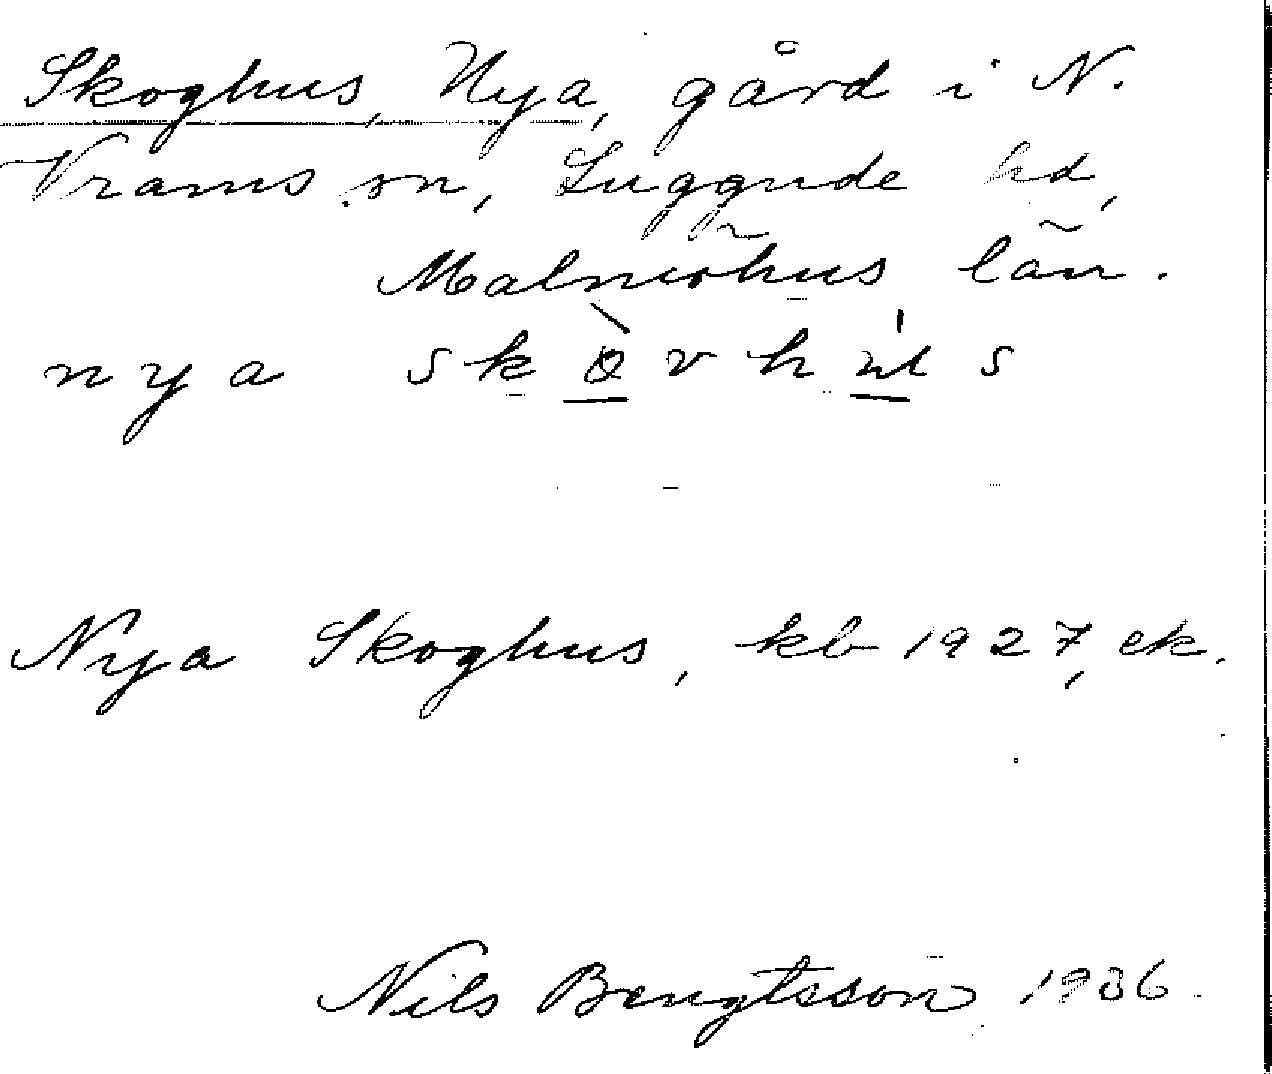 Skoghus, Nya, gård i N.
Vrams sn, Luggude hd,
Malmöhus län.
nya skòvhús
Nya Skoghus, kb 1927, ek.
Nils Bengtsson 1936